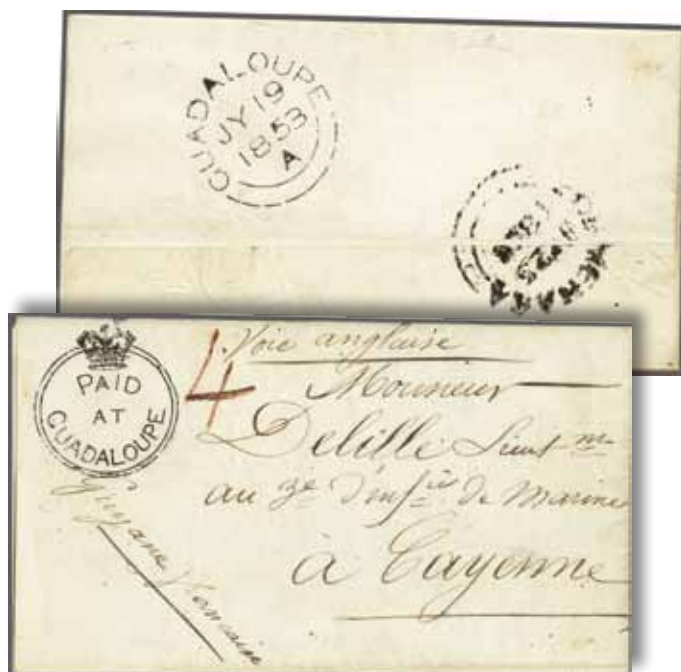 GUADALOUPE
JY 19
1853
A
PAID
AT
GUADALOUPE
4
Voie anglaise
Monsieur
Delille Lieut
au 3e d'inf.ie de Marine
à Cayenne
Guyane française